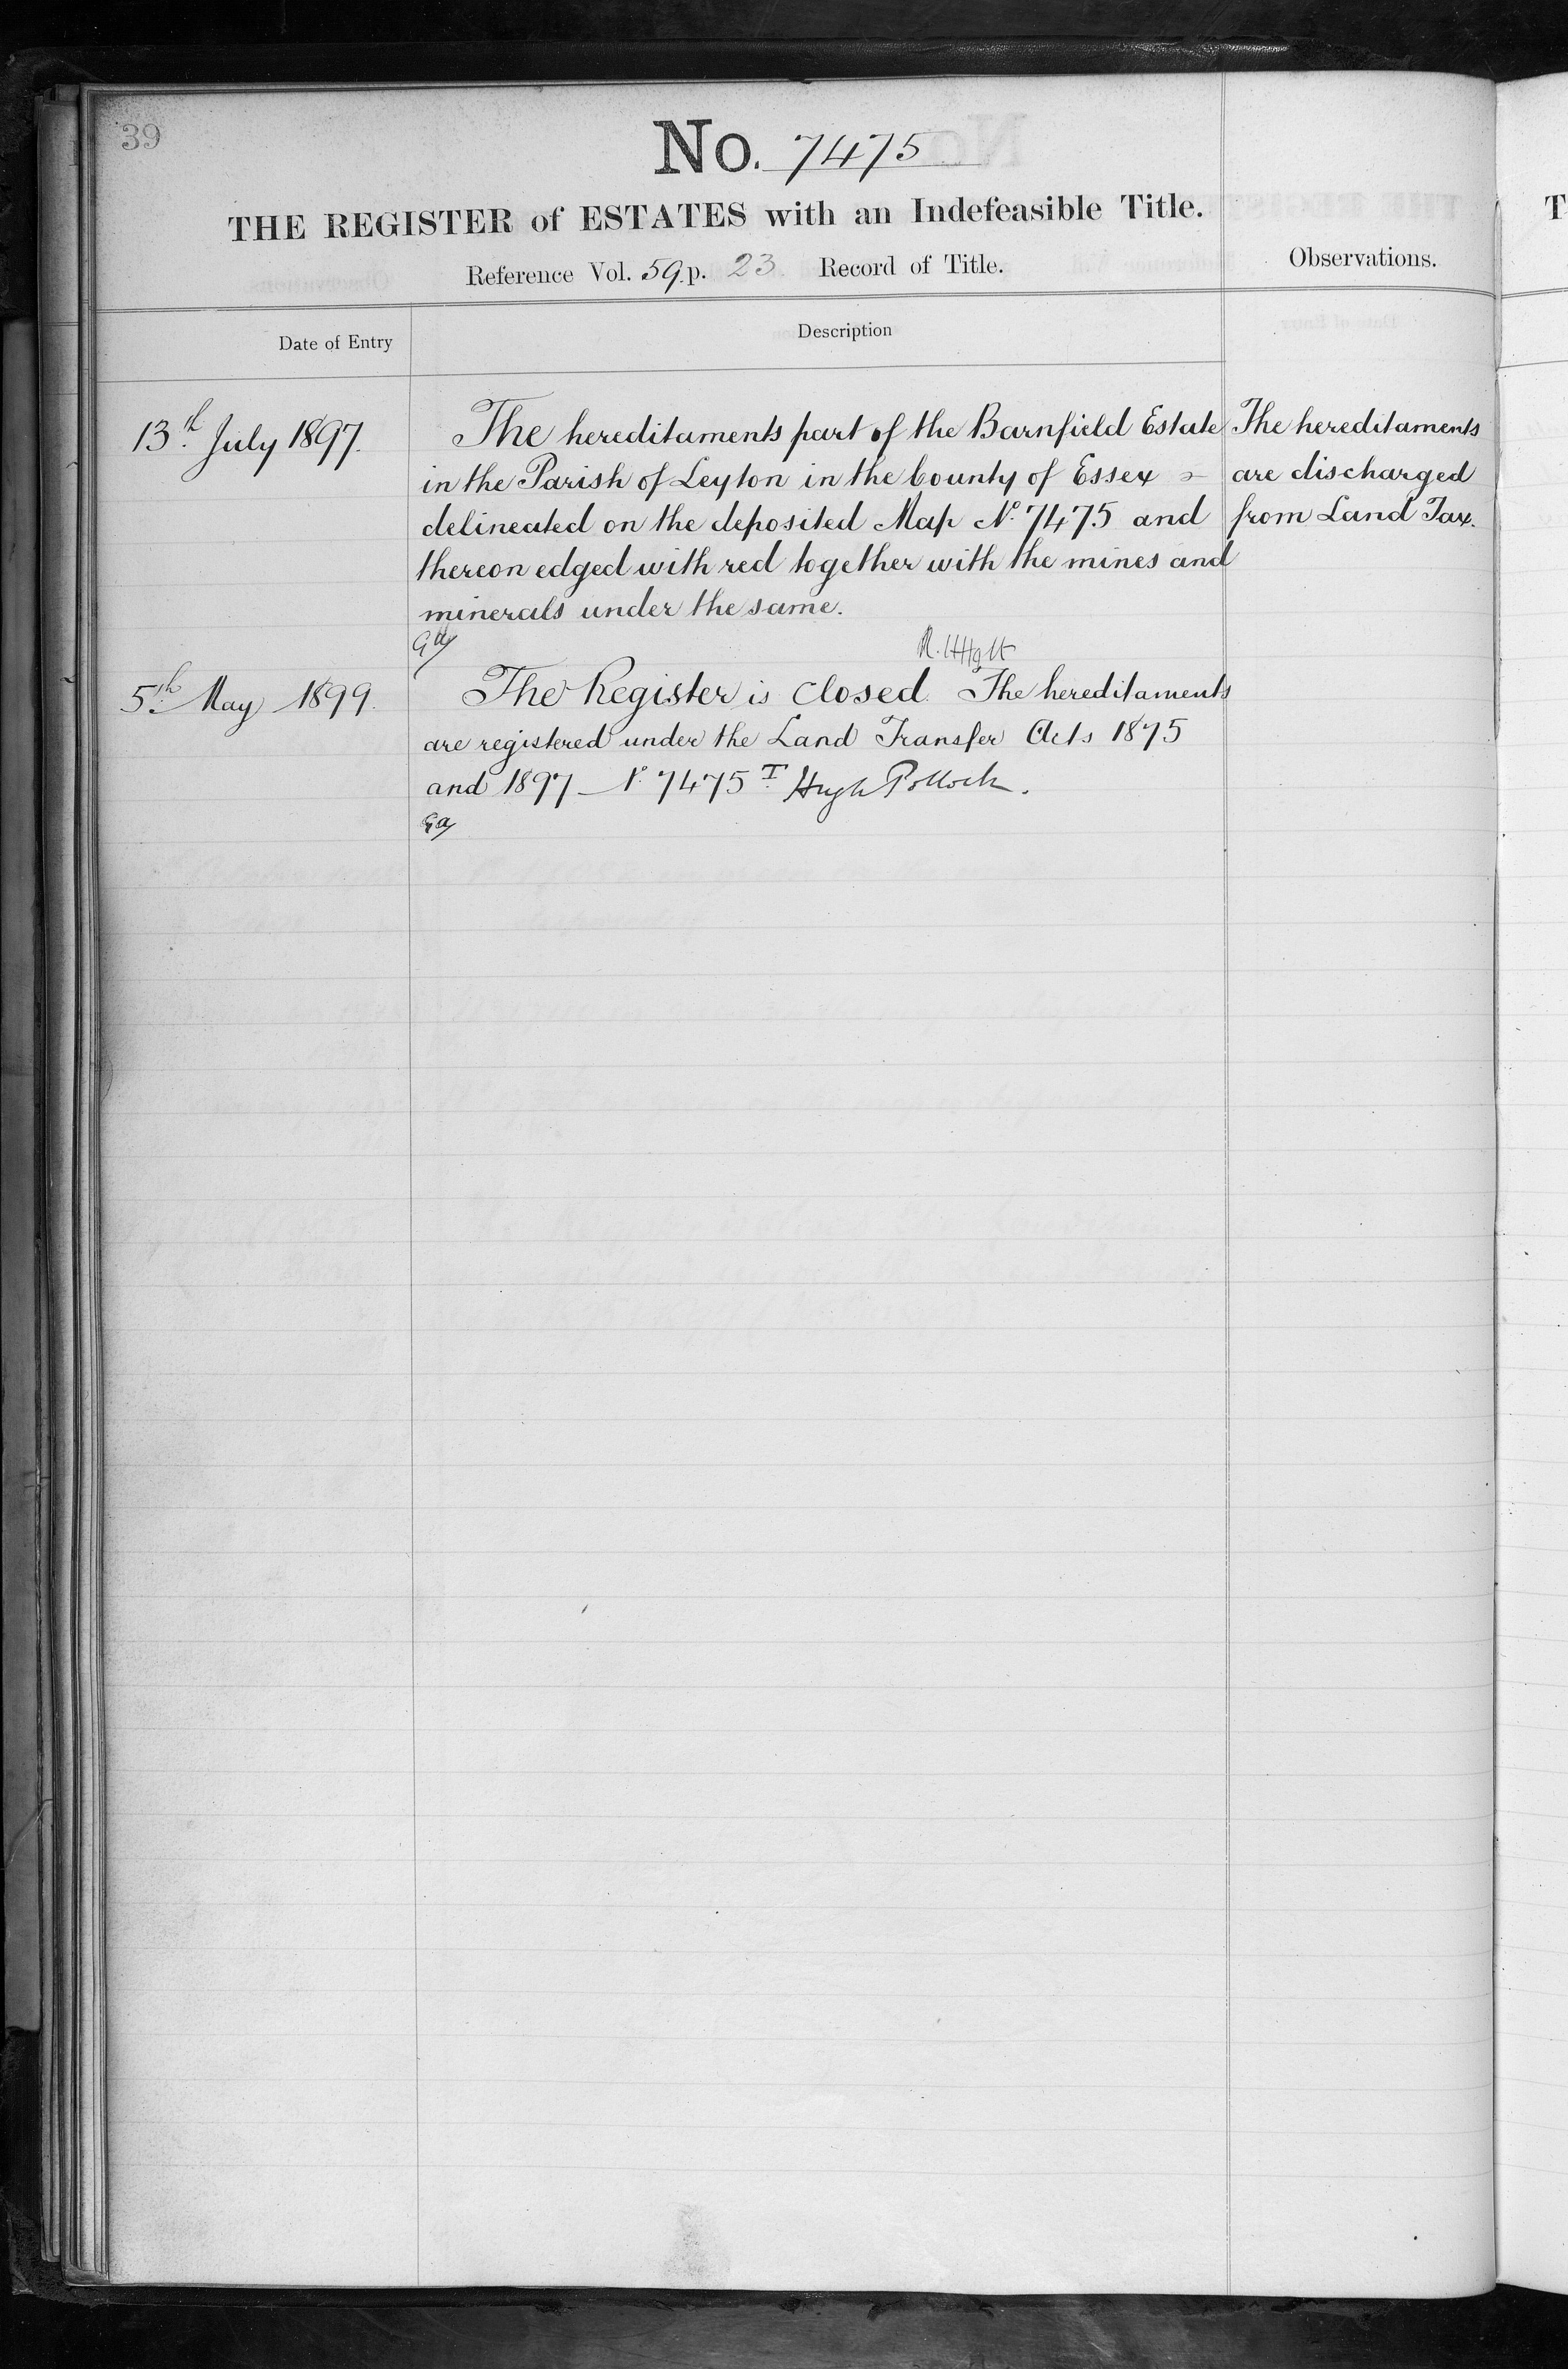 39
No. 7475
THE REGISTER of ESTATES with an Indefeasible Title.
Reference Vol. 59. p. 23 Record of Title.
Observations.
Date of Entry
Description
13th July 1897.
The hereditaments part of the Barnfield Estate
in the Parish of Leyton in the County of Essex
delineated on the deposited Map No. 7475 and
thereon edged with red together with the mines and
minerals under the same.
The hereditaments
are discharged
from Land Tax.
5th May 1899.
The Register is closed. The hereditaments
are registered under the Land Transfer Acts 1875
and 1897 – No. 7475 T. Hugh Pollock.